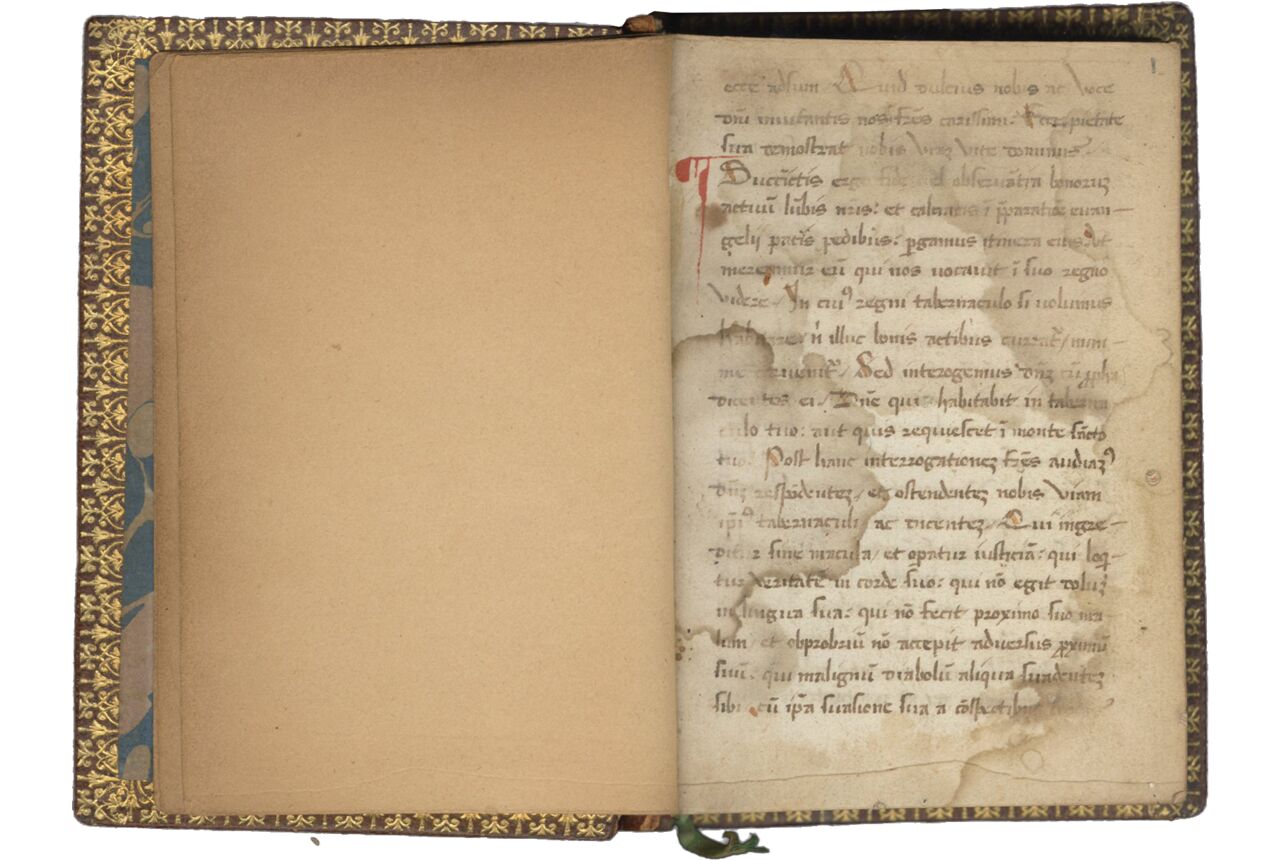 1
ecce adsum Quid dulcius nobis ac voce
dñi invitantis nos frēs carissimi. Ecce pietate
sua demostrat nobis viaz vite dominus
Succictis ergo fide vel observātia bonoruz
actuū lūbis nr̄is: et calciatis ī p̄paratiōe euan—
gelii pacis pedibus: pergamus itinera eius. Ut
mereamur eū qui nos uocauit ī suo regno
videre. In cuiꝰ regni tabernaculo si uolumus
habitare, n̄ illuc bonis actibus currat̄, mini—
me pervenit̄. Sed interogemus dn̄z cū ꝓpha
dicentes ei. Dn̄e quis habitabit in taberna
culo tuo: aut quis requiescet ī monte sācto
tuo. Post hanc interrogationez frēs audiazꝰ
dn̄z respōdentez, et ostendentez nobis viam
ip̄iꝰ tabernaculi, ac dicentez, Qui ingre—
ditur sine macula, et opatur iusticiā: qui loq—
tur veritatē in corde suo: qui nō egit doluz
in lingua sua: qui nō fecit proximo suo ma
lum, et obprobriū nō accepit adversus ꝓximū
suū: qui malignū diabolū aliqua suadentez
sibi cū ip̄a suasione sua a cōspectibus